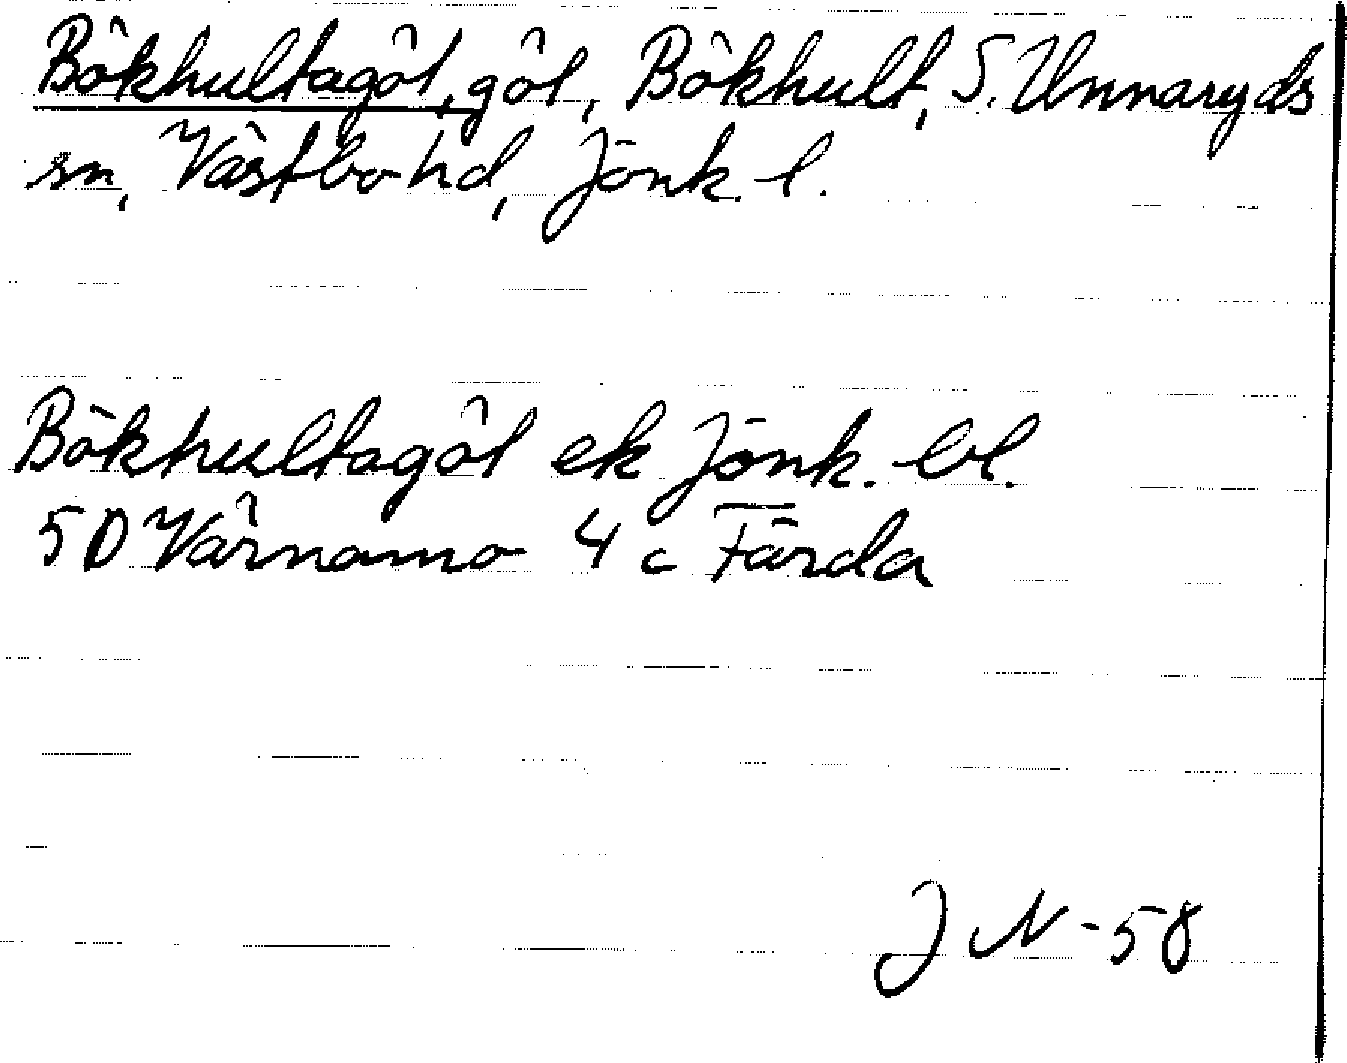 Bökhultagöl, göl, Bökhult, S. Unnaryds
sn, Västbo hd, Jönk. l.
Bökhultagöl ek Jönk. bl.
5D Värnamo 4 c Färda
JN-58